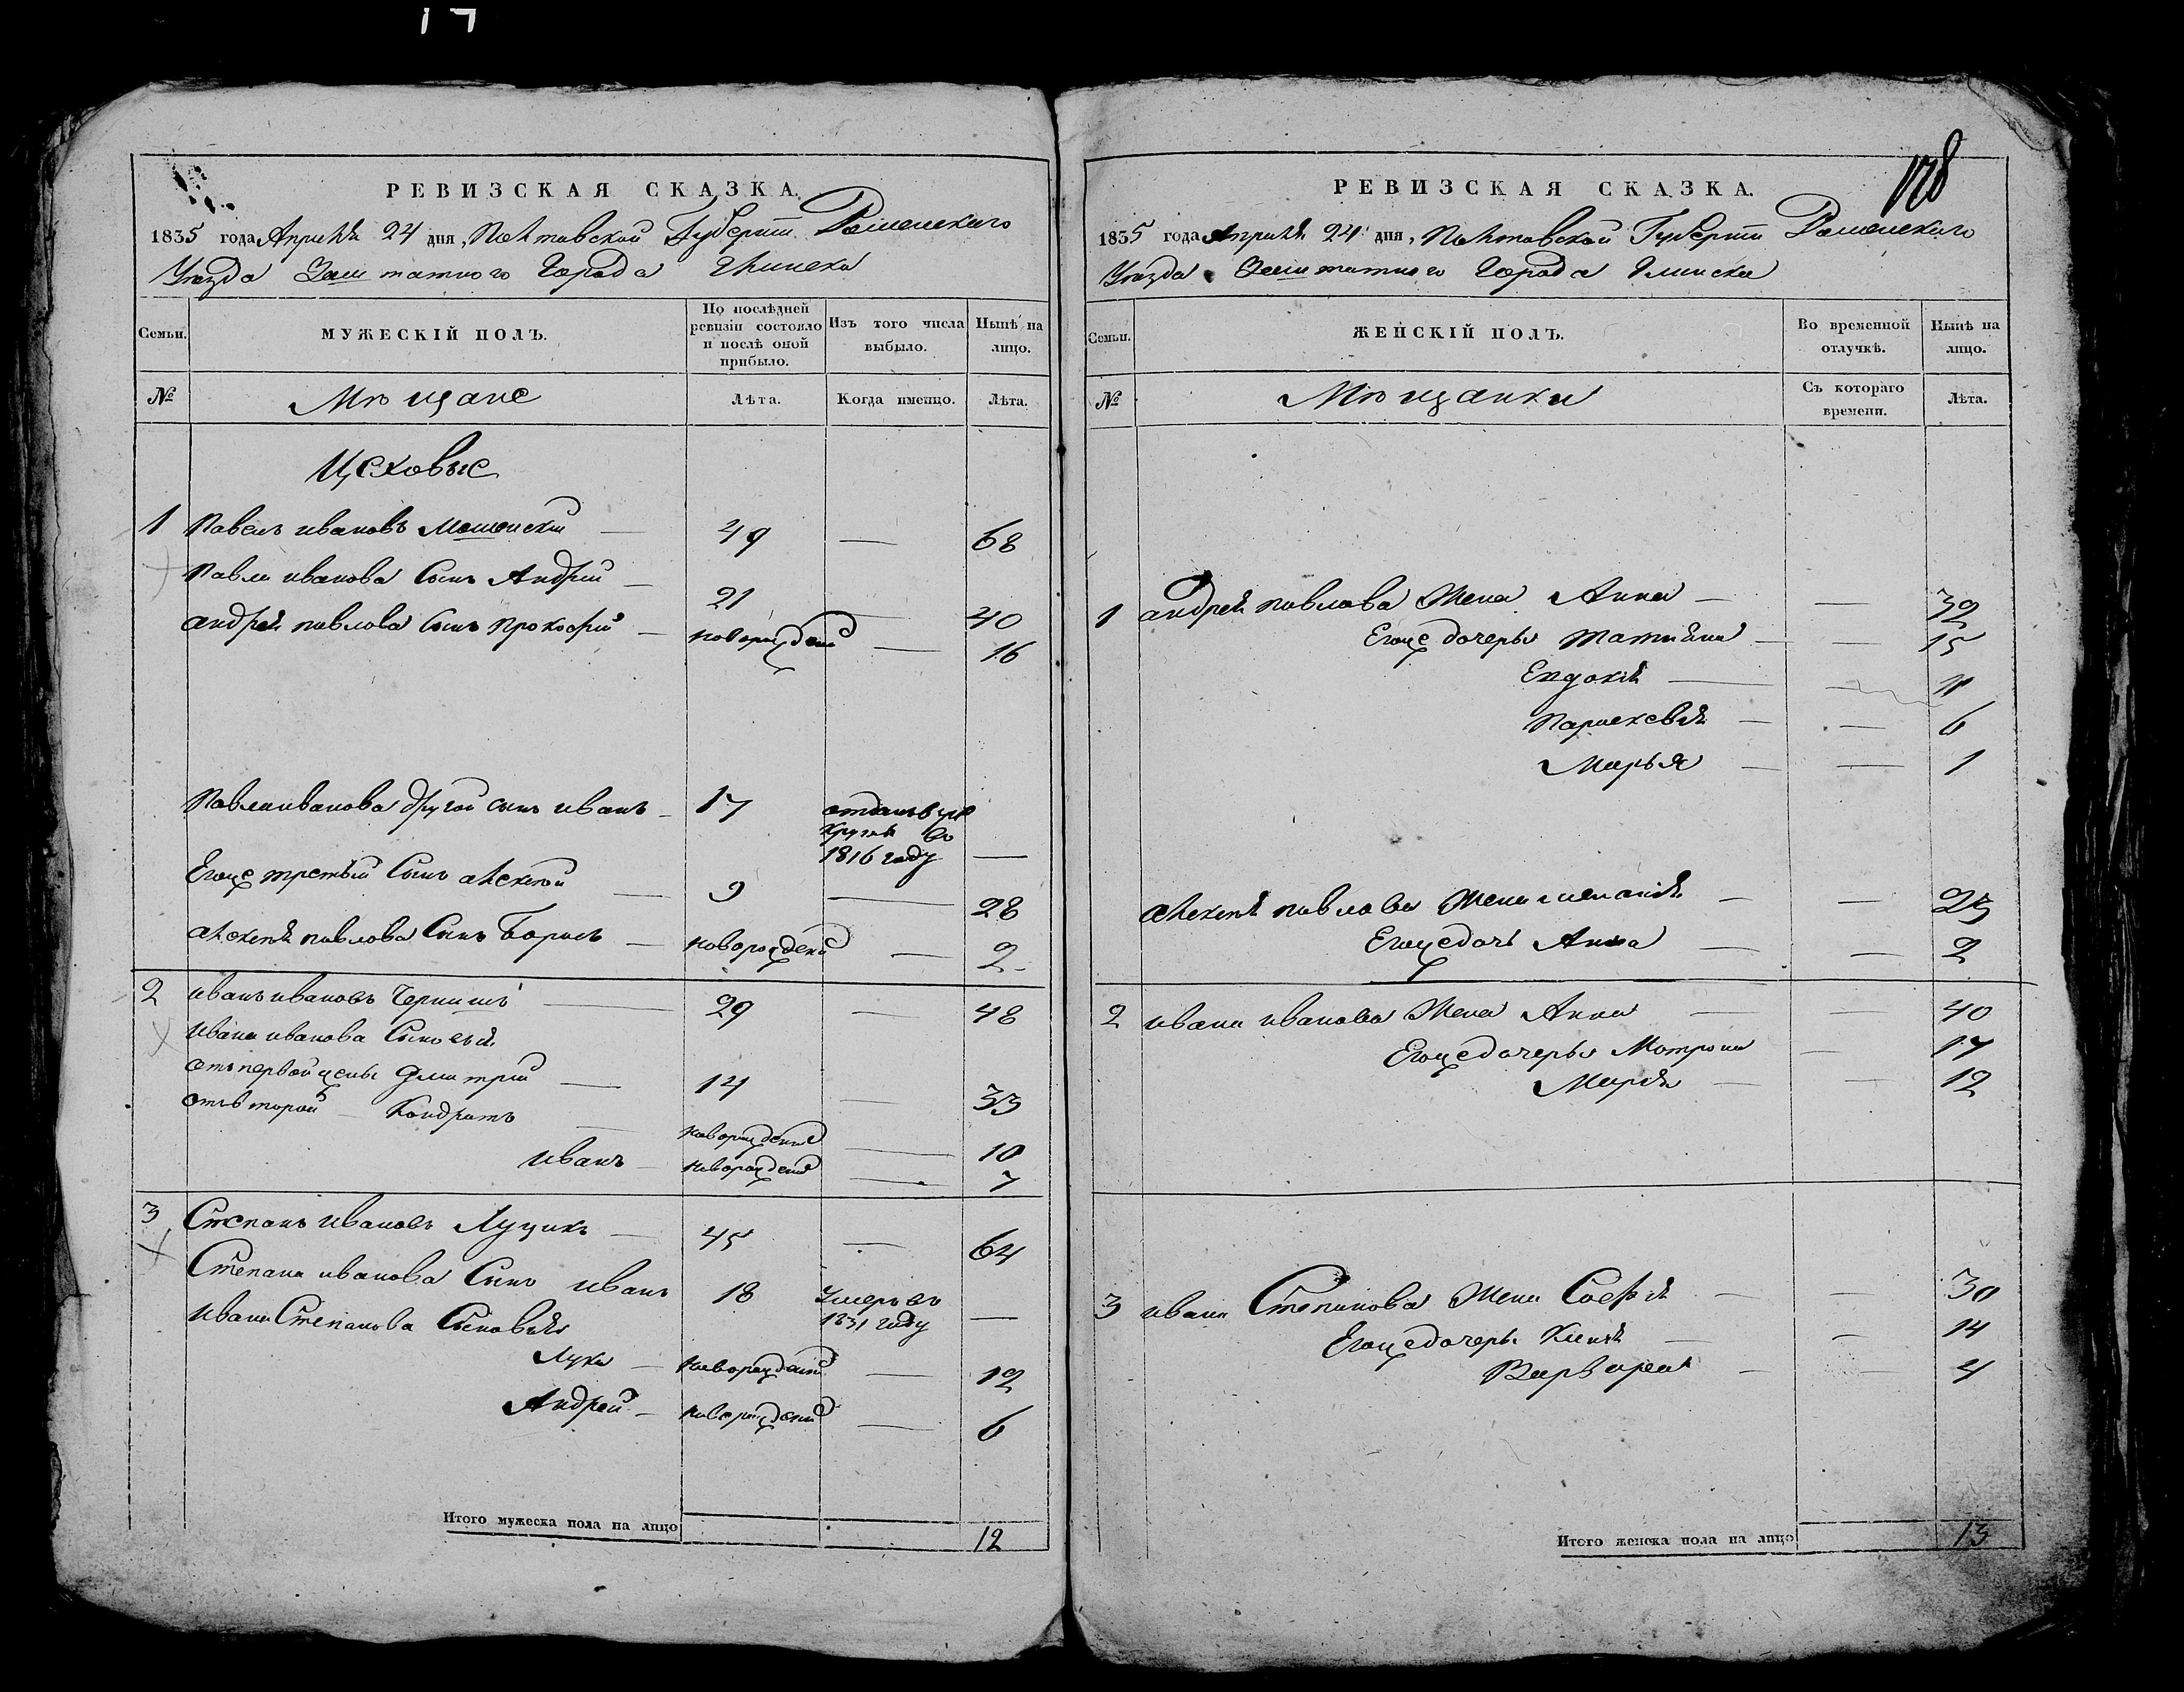 РЕВИЗСКАЯ СКАЗКА.
1835 года Апрѣля 24 дня, Полтавской Губерніи Роменского
Уѣзда Заштатного Города Глинска
Семьи.
МУЖЕСКІЙ ПОЛЪ.
По послѣдней ревизіи состояло и послѣ оной прибыло.
Изъ того числа выбыло.
Нынѣ на лицо.
№
Мѣщане
Лѣта.
Когда именно.
Лѣта.
Цеховые
1 Павелъ Ивановъ — 49 — 68
Павла Иванова Сынъ Андрей — 21 — 40
Андрея Павлова Сынъ Прокофій — новорожденъ — 16
Павла Иванова другой сынъ Иванъ — 17 отданъ въ рекруты въ 1816 году —
Егоже третьий Сынъ Алексей — 9 — 28
Алексея Павлова Сынъ Борисъ — новорожденъ — 2
2 Иванъ Ивановъ Чернишъ — 29 — 48
Ивана Иванова Сыновья
отъ первой жены Дмитрий — 14 — 33
отъ второй — Кондратъ — новорожденъ — 10
Иванъ — новорожденъ — 7
3 Степанъ Ивановъ Луцикъ — 45 — 64
Степана Иванова Сынъ Иванъ 18 Умеръ въ 1831 году —
Ивана Степанова Сыновья
Лука — новорожденъ — 12
Андрей — новорожденъ — 6
Итого мужеска пола на лицо 12
128
РЕВИЗСКАЯ СКАЗКА.
1835 года Апрѣля 24 дня, Полтавской Губерніи Роменского
Уѣзда Заштатного Города Глинска
Семьи.
ЖЕНСКІЙ ПОЛЪ.
Во временной отлучкѣ.
Нынѣ на лицо.
№
Мѣщанки
Съ котораго времени.
Лѣта.
1 Андрея Павлова Жена Анна — — 32
Егоже дочеры Татияна — — 15
Евдокія — — 11
Парасковія — — 6
Марья — — 1
Алексея Павлова Жена — — 25
Егоже дочь Анна — — 2
2 Ивана Иванова Жена Анна — — 40
Егоже дочеры Матрона — 17
Марія — — 12
3 Ивана Степанова Жена Софія — — 30
Егоже дочеры — — 14
Варвара — — 4
Итого женска пола на лицо 13